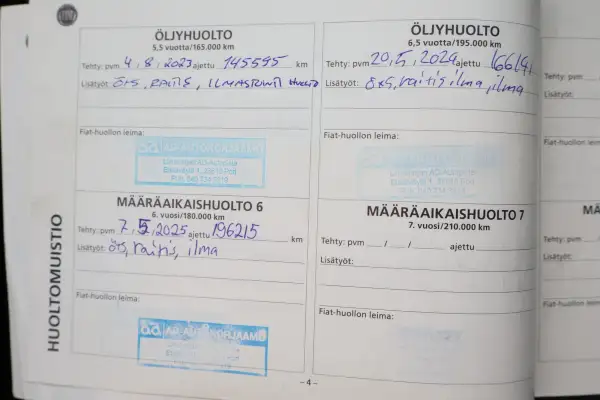 ÖLJYHUOLTO
5,5 vuotta/165.000 km
Tehty: pvm 4, 8, 2023 ajettu 145595 km
Lisätyöt: ÖJS, RAITIS, ILMASTOINTI HUOLTO
Fiat-huollon leima:
ÖLJYHUOLTO
6,5 vuotta/195.000 km
Tehty: pvm 20, 5, 2024 ajettu
Lisätyöt: ÖjS, raitis ilma, ilma
Fiat-huollon leima:
MÄÄRÄAIKAISHUOLTO 6
6. vuosi/180.000 km
Tehty: pvm 7, 5, 2025 ajettu 196215 km
Lisätyöt: öjs, raitis, ilma
Fiat-huollon leima:
MÄÄRÄAIKAISHUOLTO 7
7. vuosi/210.000 km
Tehty: pvm / / ajettu
Lisätyöt:
Fiat-huollon leima:
HUOLTOMUISTIO
– 4 –
Tehty: pvm
Lisätyöt:
MÄ
Tehty: pvm
Lisätyöt: